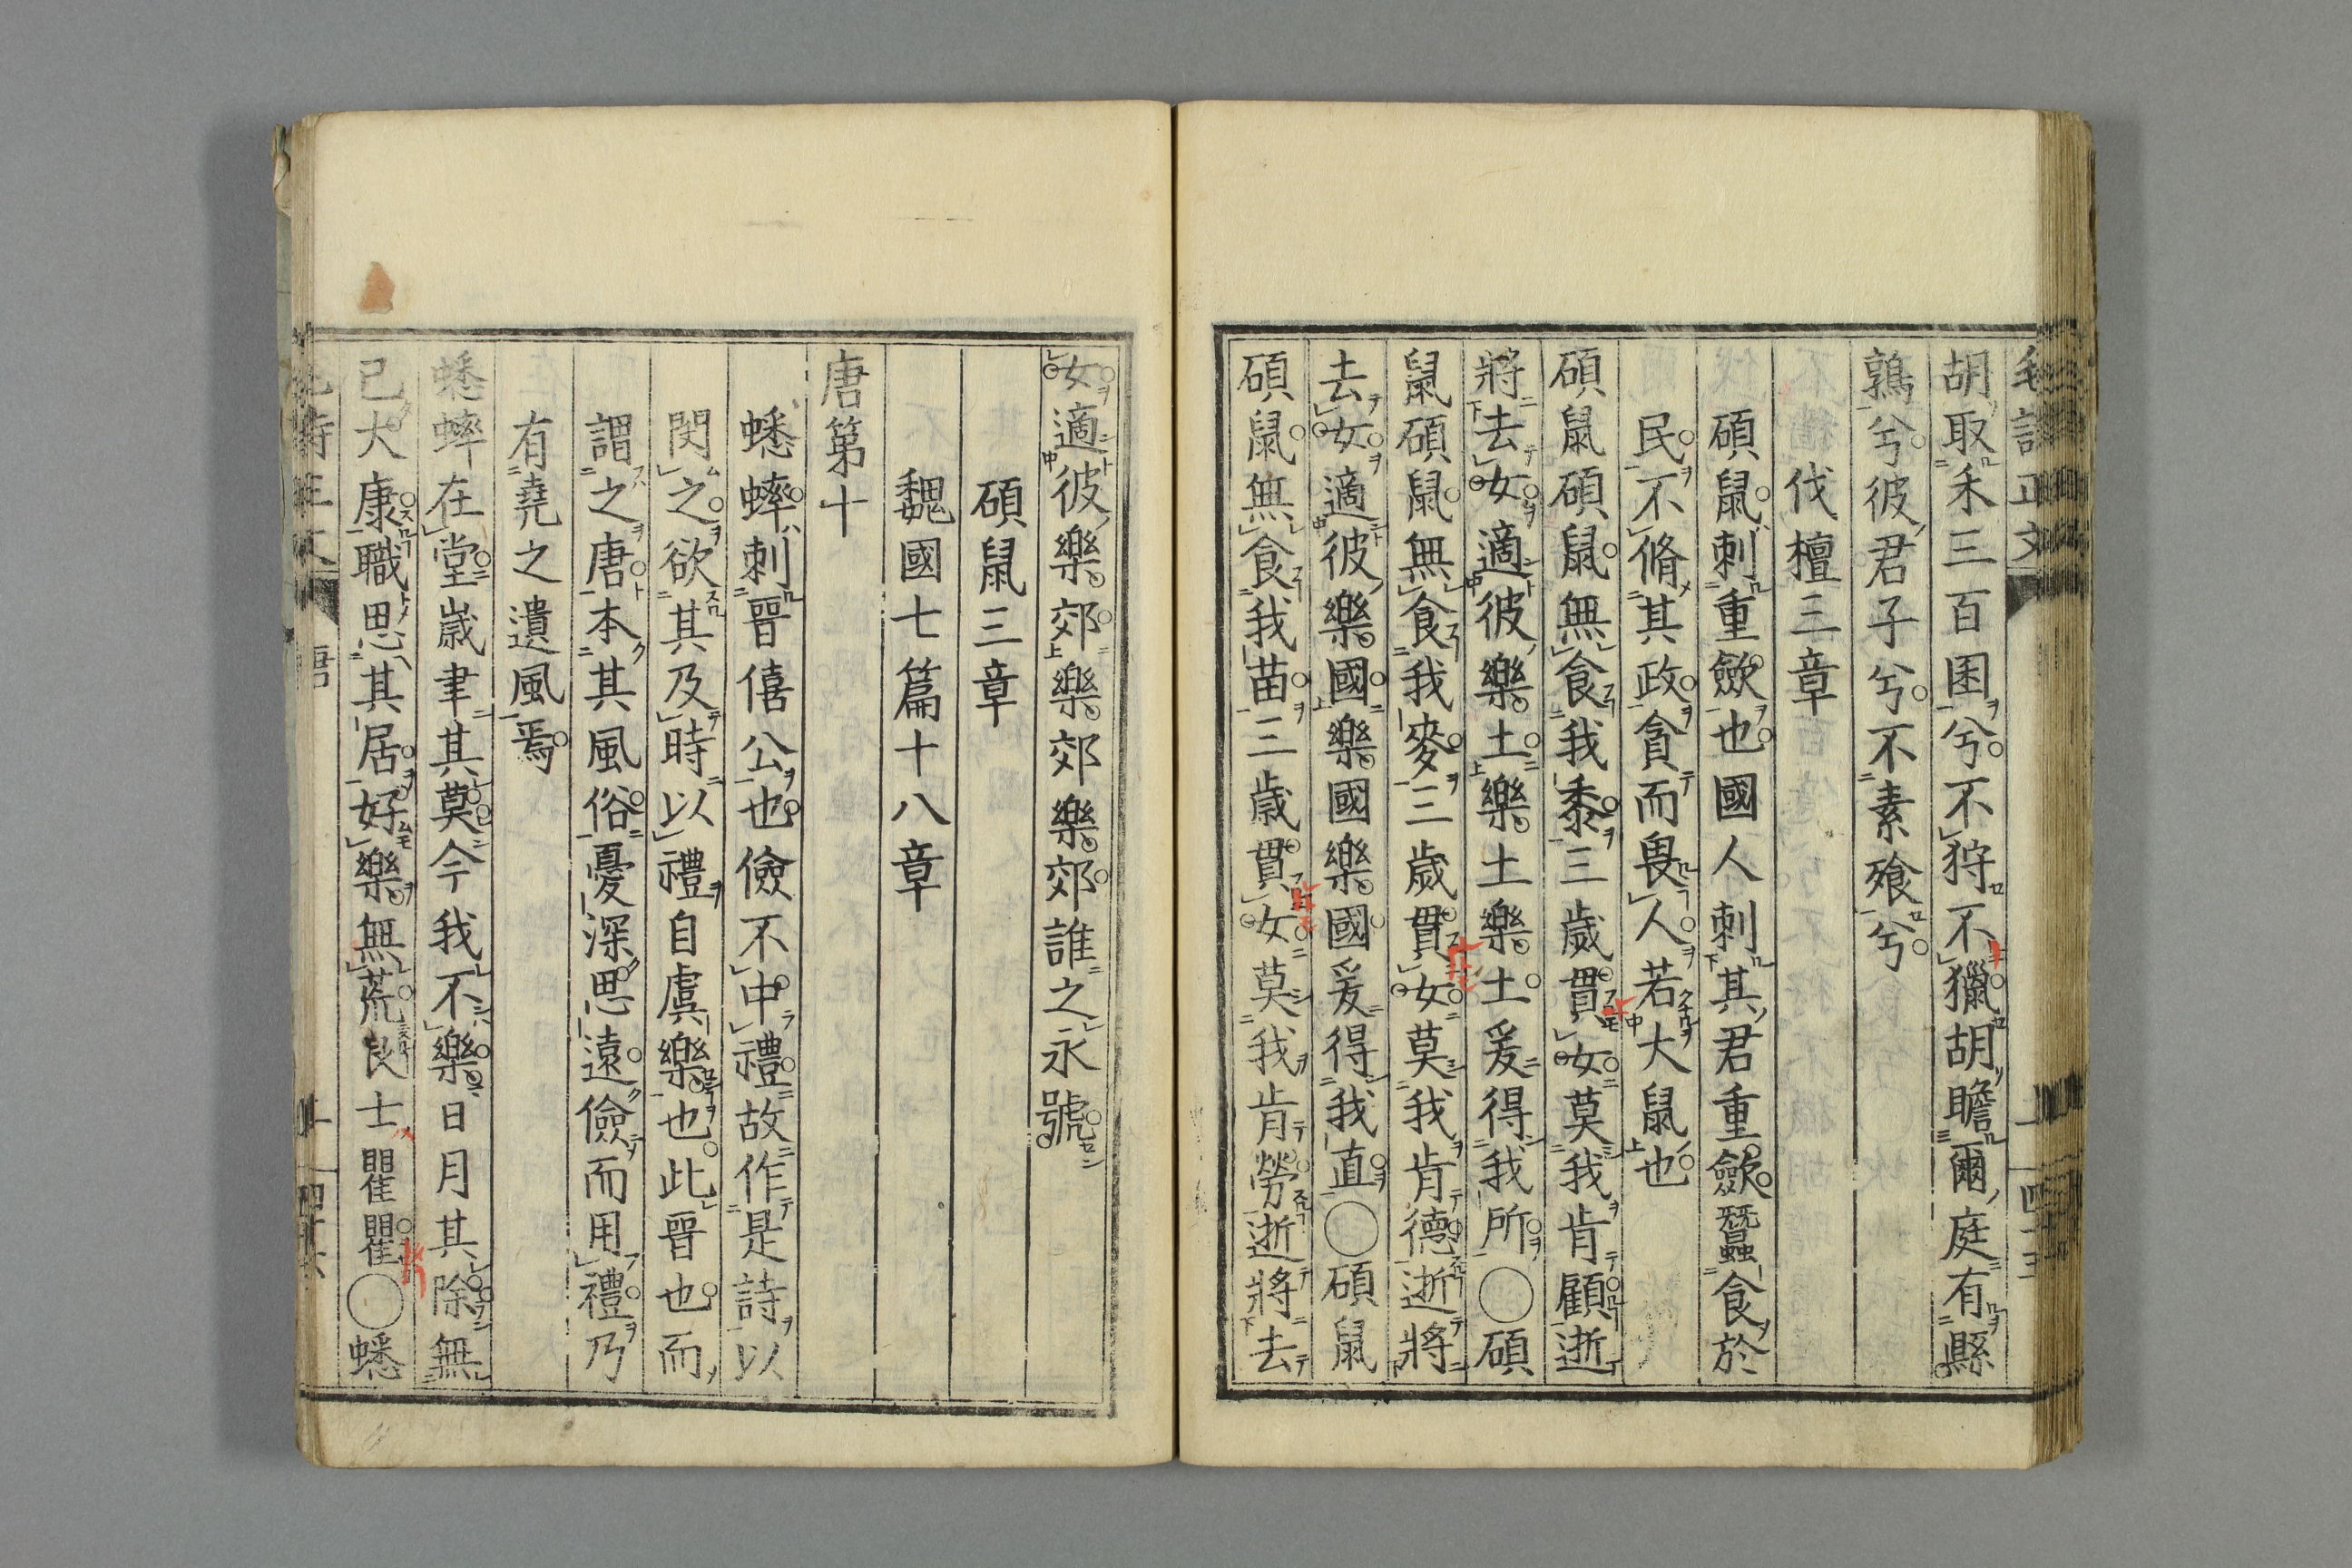 毛詩正文
胡取禾三百囷兮不狩不獵胡瞻爾庭有縣
鶉兮彼君子兮不素飧兮
伐檀三章
碩鼠刺重歛也國人刺其君重歛蠶食於
民不脩其政貪而畏人若大鼠也
碩鼠碩鼠無食我黍三歲貫女莫我肯顧逝
將去女適彼樂土樂土樂土爰得我所○碩
鼠碩鼠無食我麥三歲貫女莫我肯德逝將
去女適彼樂國樂國樂國爰得我直○碩鼠
碩鼠無食我苗三歲貫女莫我肯勞逝將去
女適彼樂郊樂郊樂郊誰之永號
碩鼠三章
魏國七篇十八章
唐第十
蟋蟀刺晉僖公也儉不中禮故作是詩以
閔之欲其及時以禮自虞樂也此晉也而
謂之唐本其風俗憂深思遠儉而用禮乃
有堯之遺風焉
蟋蟀在堂歲聿其莫今我不樂日月其除無
已大康職思其居好樂無荒良士瞿瞿○蟋